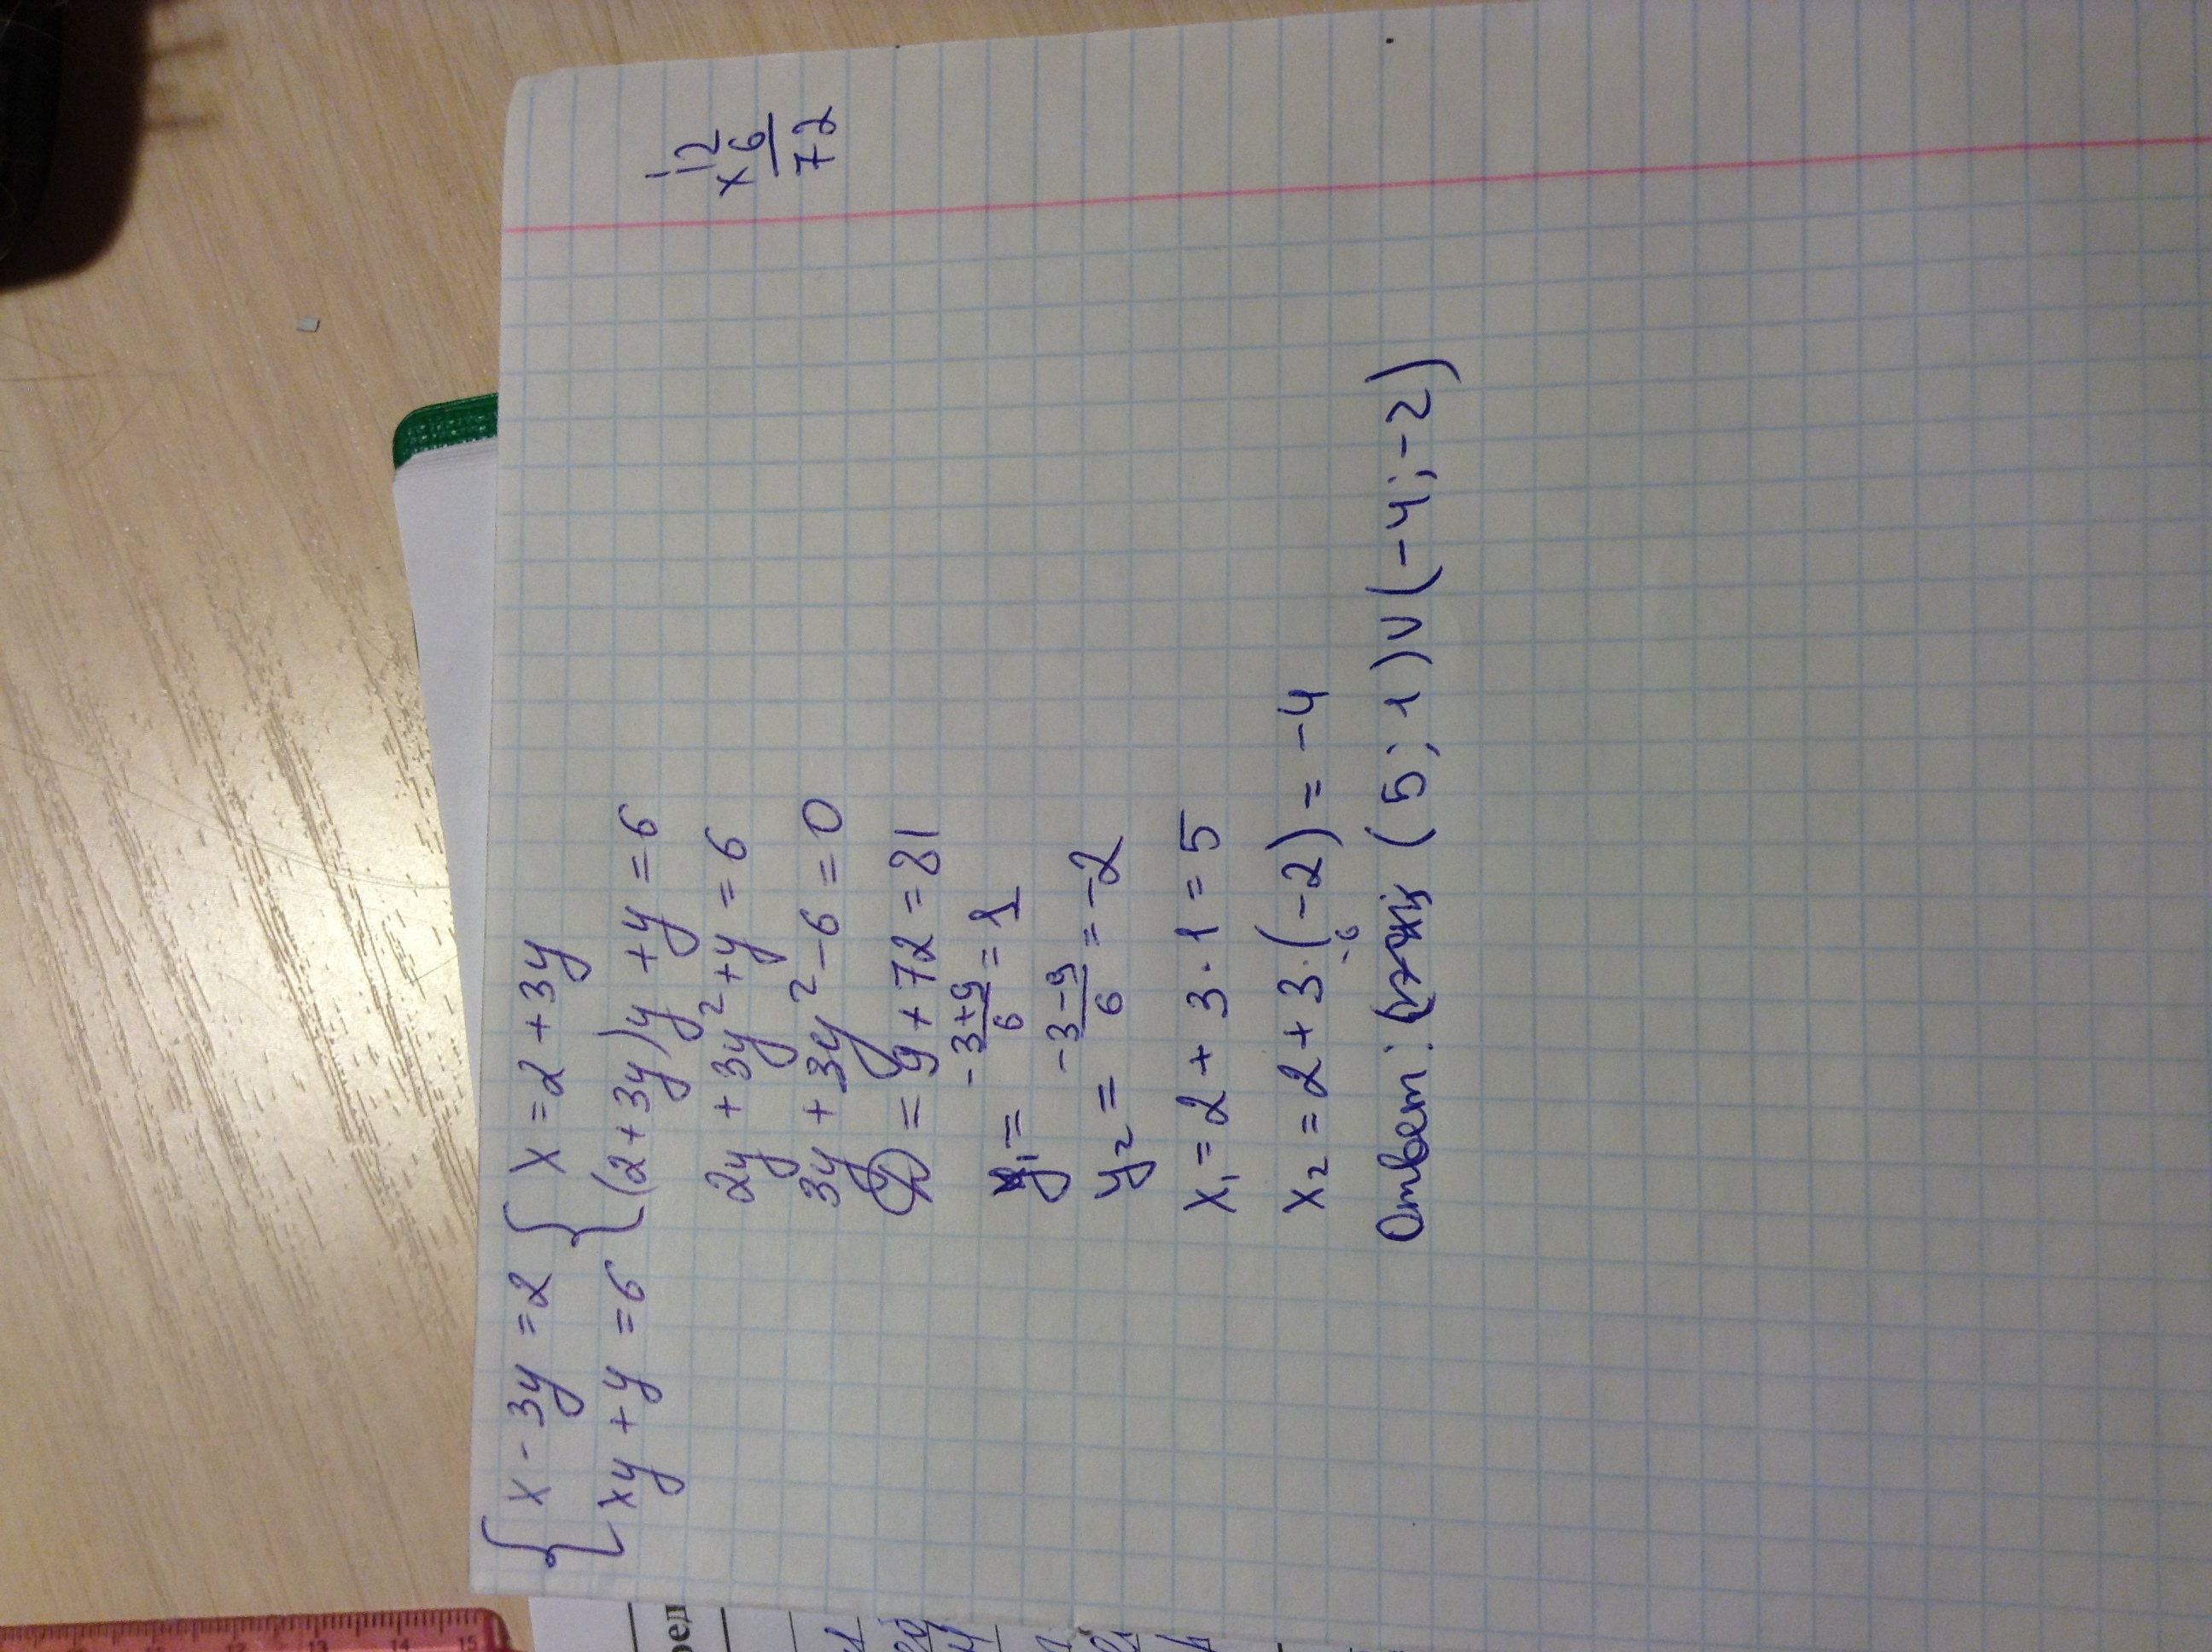 { x - 3y = 2 { x = 2 + 3y
{ xy + y = 6 { (2 + 3y)y + y = 6
2y + 3y² + y = 6
3y + 3y² - 6 = 0
D = 9 + 72 = 81
y₁ = -3+9/6 = 1
y₂ = -3-9/6 = -2
x₁ = 2 + 3 · 1 = 5
x₂ = 2 + 3 · (-2) = -4
-6
Ответ: (5; 1) ∪ (-4; -2)
1
12
× 6
72
12
13
14
15